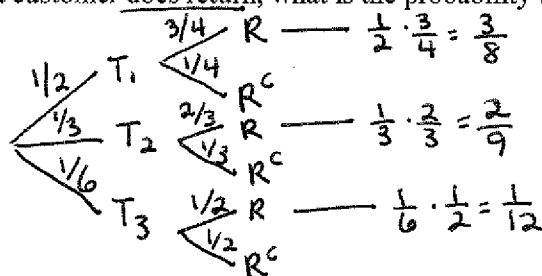 customer does return, what is the probability
3/4 R — 1/2 · 3/4 = 3/8
1/2 T₁ 1/4 Rᶜ
1/3 T₂ 2/3 R — 1/3 · 2/3 = 2/9
1/3 Rᶜ
1/6 T₃ 1/2 R — 1/6 · 1/2 = 1/12
1/2 Rᶜ